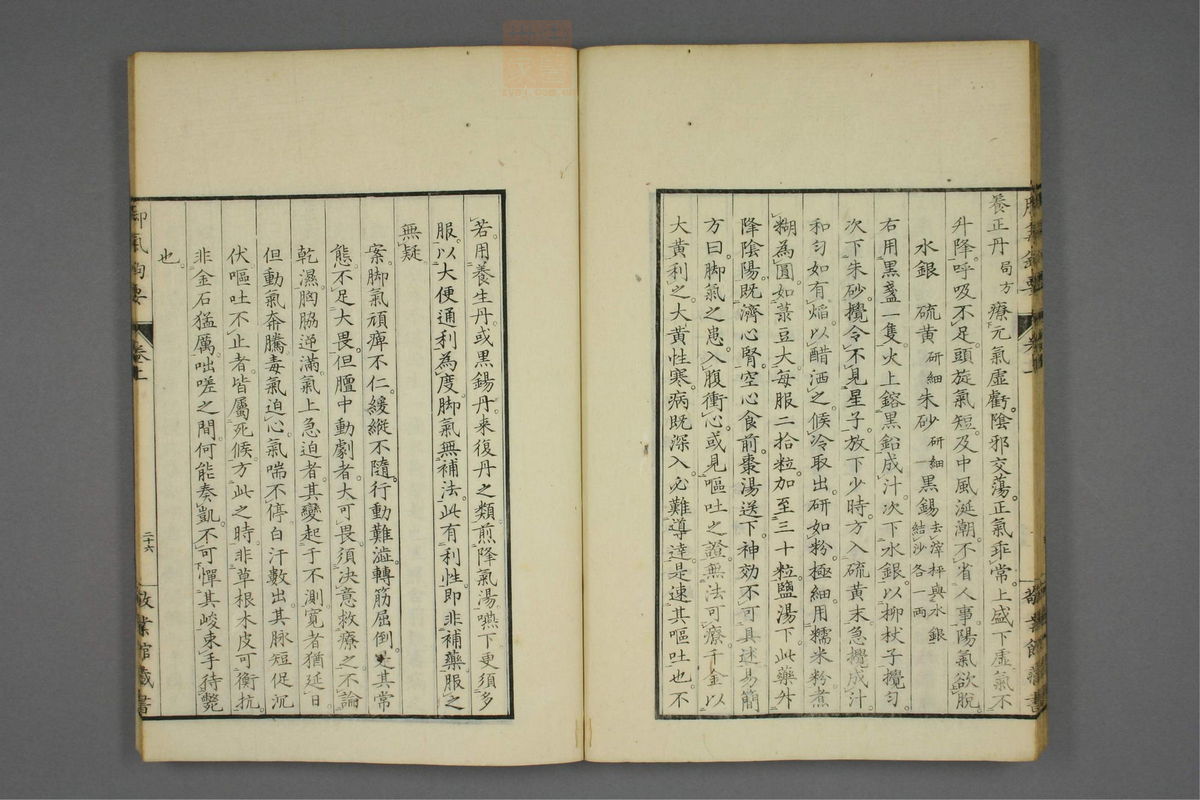 養正丹局方療元氣虛虧。陰邪交蕩。正氣乖常。上盛下虛。氣不
升降。呼吸不足。頭旋氣短。及中風涎潮。不省人事。陽氣欲脫。
水銀 硫黃研細 朱砂研細 一黑錫去滓秤與水銀結沙各一兩
右用黑盞一隻。火上鎔黑鉛成汁。次下水銀。以柳杖子攪勻。
次下朱砂。攪令不見星子。放下少時。方入硫黃末。急攪成汁。
和勻。如有焰。以醋洒之。候冷取出。研如粉極細。用糯米粉煮
糊為圓。如菉豆大。每服二拾粒。加至三十粒。鹽湯下。此藥升
降陰陽。既濟心腎。空心食前棗湯送下。神効不可具述。易簡
方曰。脚氣之患。入腹衝心。或見嘔吐之證。無法可療。千金以
大黃利之。大黃性寒。病既深入。必難導達。是速其嘔吐也。不
若用養生丹。或黑錫丹。来復丹之類。煎降氣湯嚥下。更須多
服。以大便通利為度。脚氣無補法。此有利性。即非補藥。服之
無疑
案脚氣頑痺不仁。緩縱不隨。行動難澁。轉筋屈倒。是其常
態。不足大畏。但膻中動劇者。大可畏。須決意救療之。不論
乾濕。胸脇逆滿。氣上急迫者。其變起于不測。寛者猶延日。
但動氣奔騰。毒氣迫心。氣喘不停。白汗數出。其脉短促沉
伏。嘔吐不止者。皆屬死候。方此之時。非草根木皮可衡抗。
非金石猛厲。咄嗟之間何能奏凱。不可憚其峻。束手待斃
也。
卷上
二十六
敬業館藏書